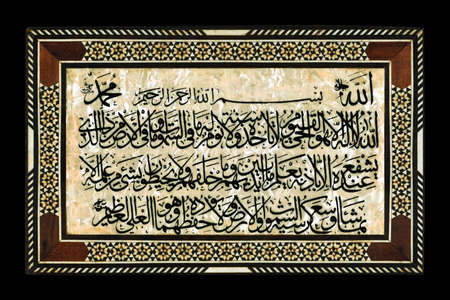 الله بسم الله الرحمن الرحيم محمد
الله لا اله الا هو الحي القيوم لا تأخذه سنة ولا نوم له ما في السموات وما في الارض من ذا الذي
يشفع عنده الا باذنه يعلم ما بين ايديهم وما خلفهم ولا يحيطون بشيء من علمه الا
بما شاء وسع كرسيه السموات والارض ولا يؤده حفظهما وهو العلي العظيم